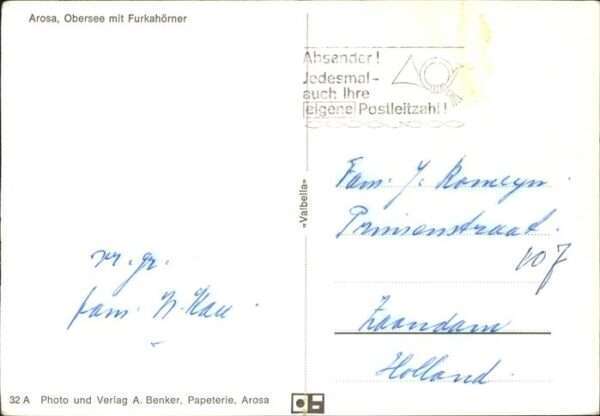 Arosa, Obersee mit Furkahörner
Absender!
Jedesmal-
auch Ihre
eigene Postleitzahl!
«Valbella»
Fam. J. Romeyn.
Prinsenstraat.
107
Zaandam
Holland.
vr. gr.
fam. N. Kau
32 A Photo und Verlag A. Benker, Papeterie, Arosa